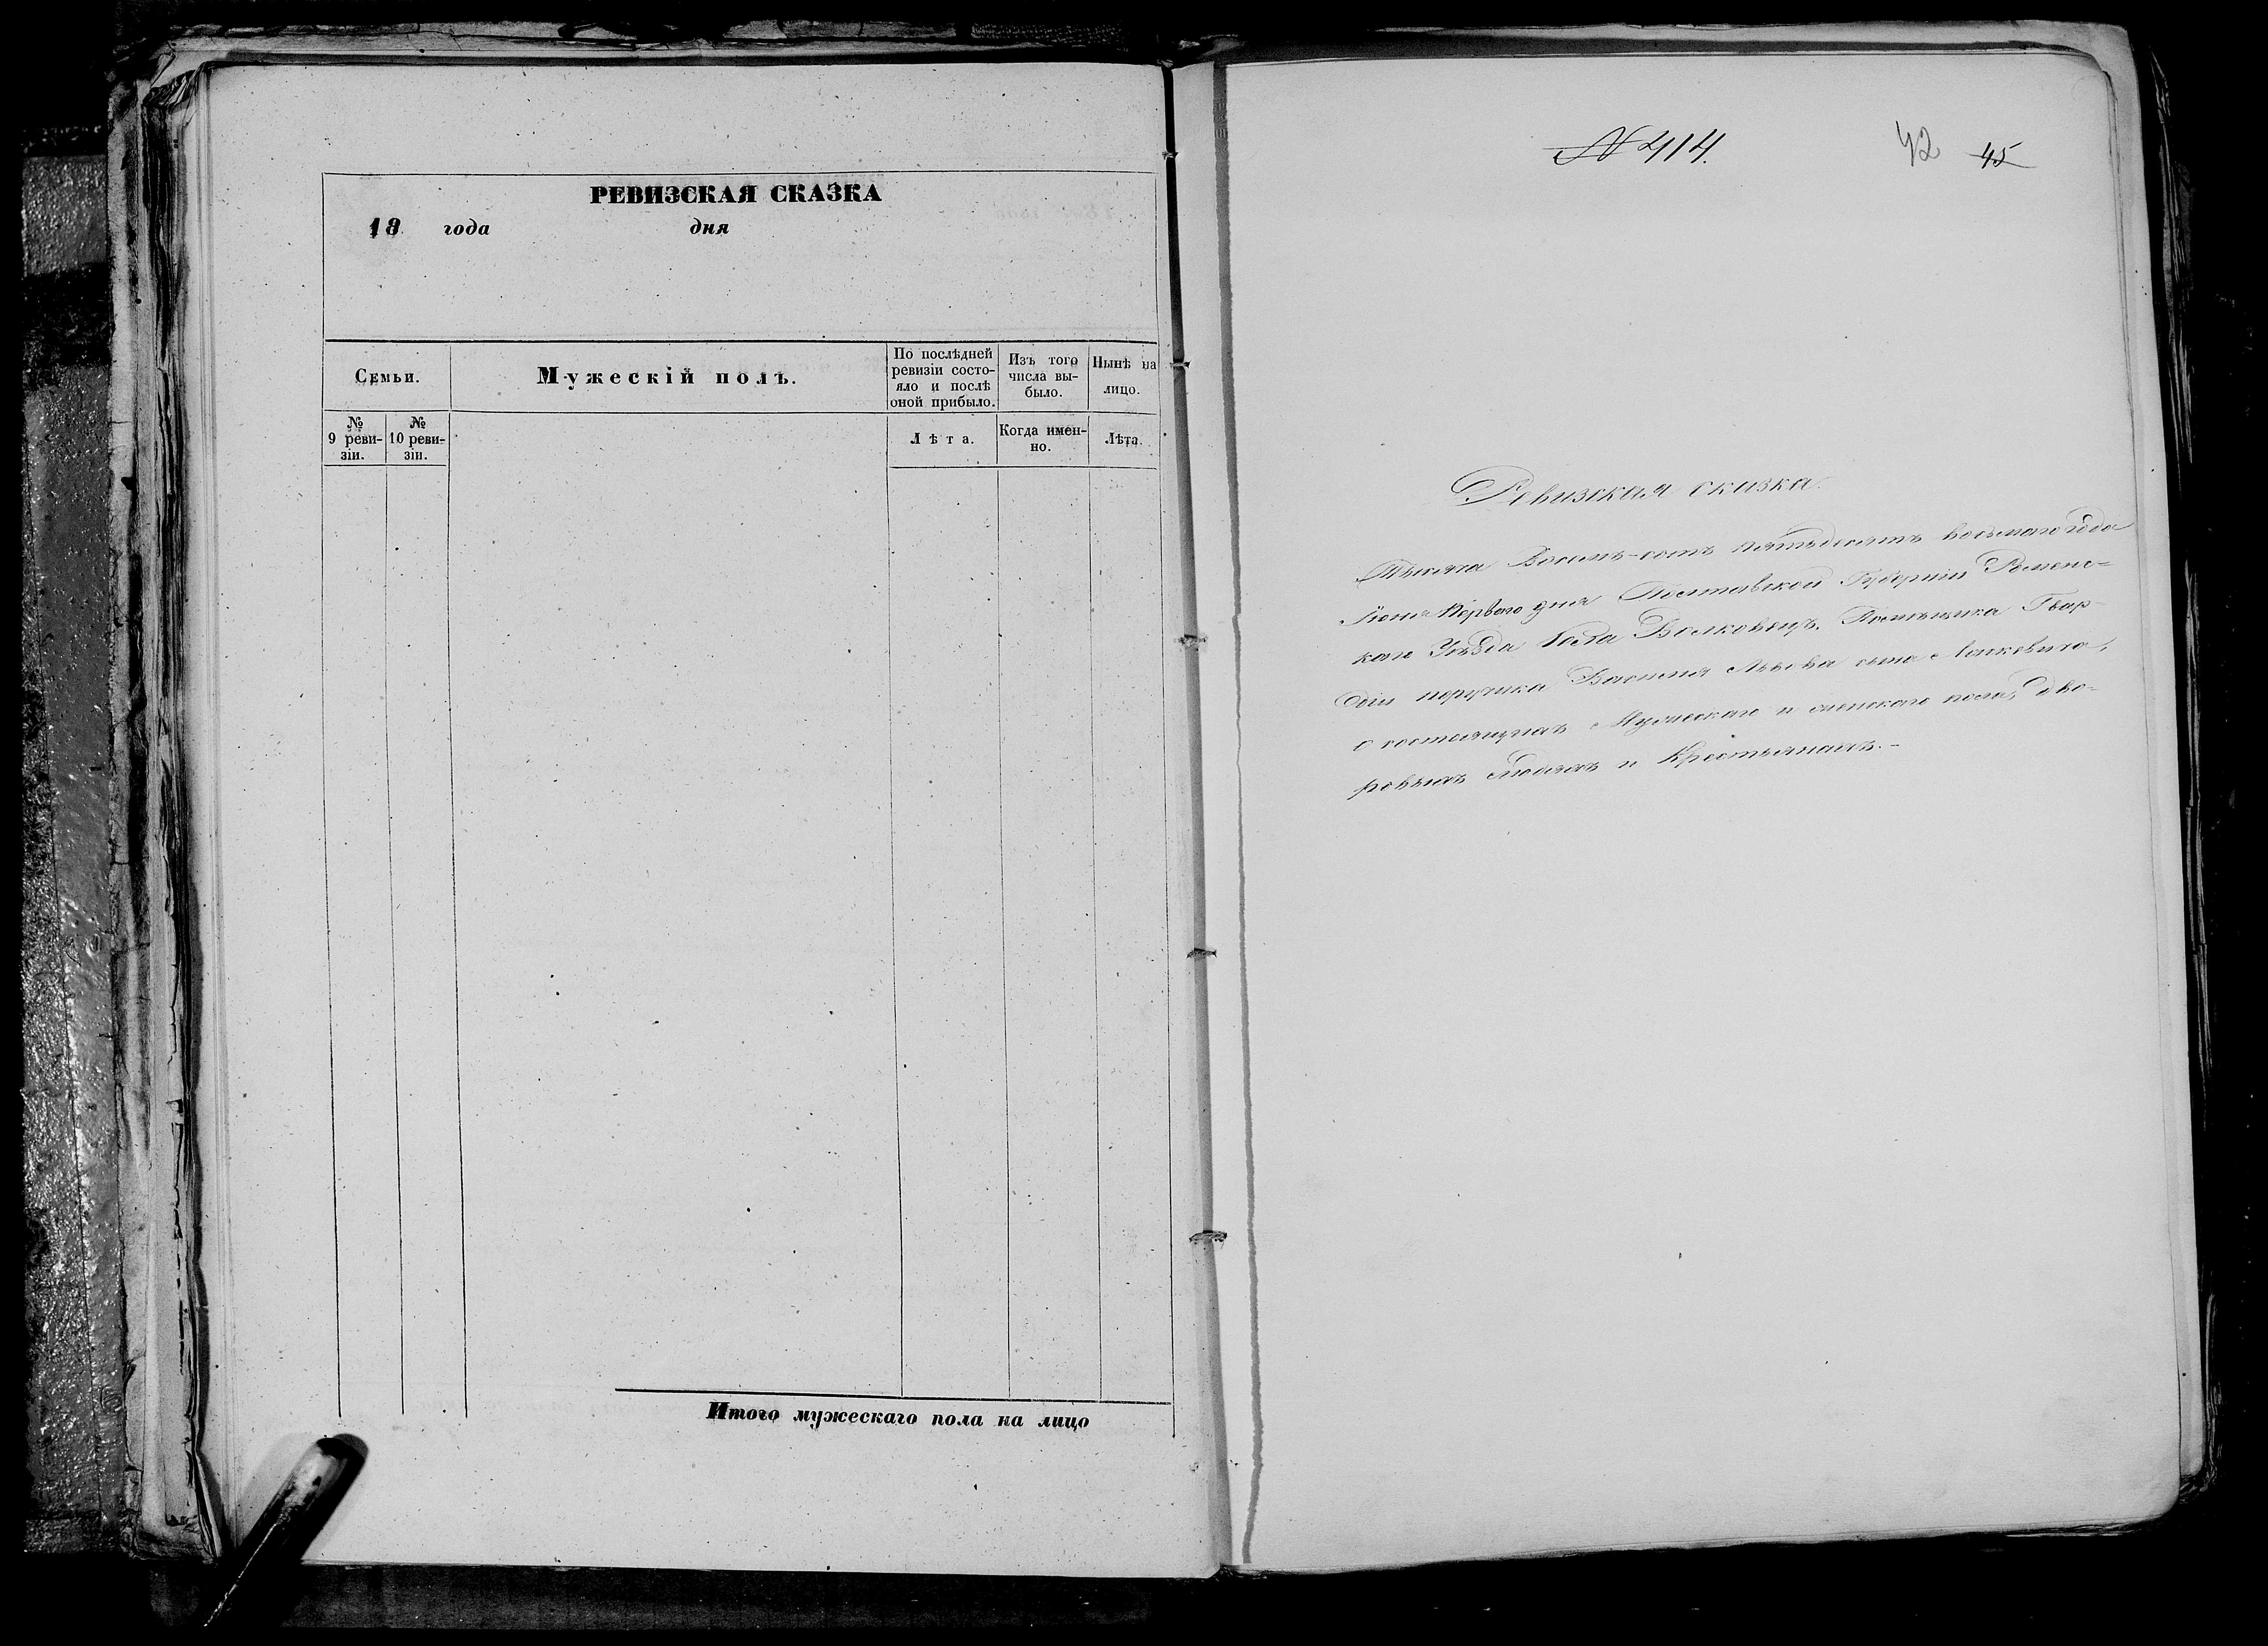 РЕВИЗСКАЯ СКАЗКА
18 года дня
Семьи.
Мужескій полъ.
По послѣдней
ревизіи состо-
яло и послѣ
оной прибыло.
Изъ того
числа вы-
было.
Нынѣ на
лицо.
№
9 реви-
зіи.
№
10 реви-
зіи.
Лѣта.
Когда имен-
но.
Лѣта.
Итого мужескаго пола на лицо
№ 414.
42 45
Ревизская сказка
Тысяча Восемь-сотъ пятьдесятъ восьмаго года
Іюня Перваго дня Полтавской Губерніи Роменс-
каго Уѣзда Села Волковецъ. Помѣщика Гвар-
діи поручика Василія Львова сына
о состоящихъ Мужескаго и женскаго пола, дво-
ровыхъ Людяхъ и Крестьянахъ.-